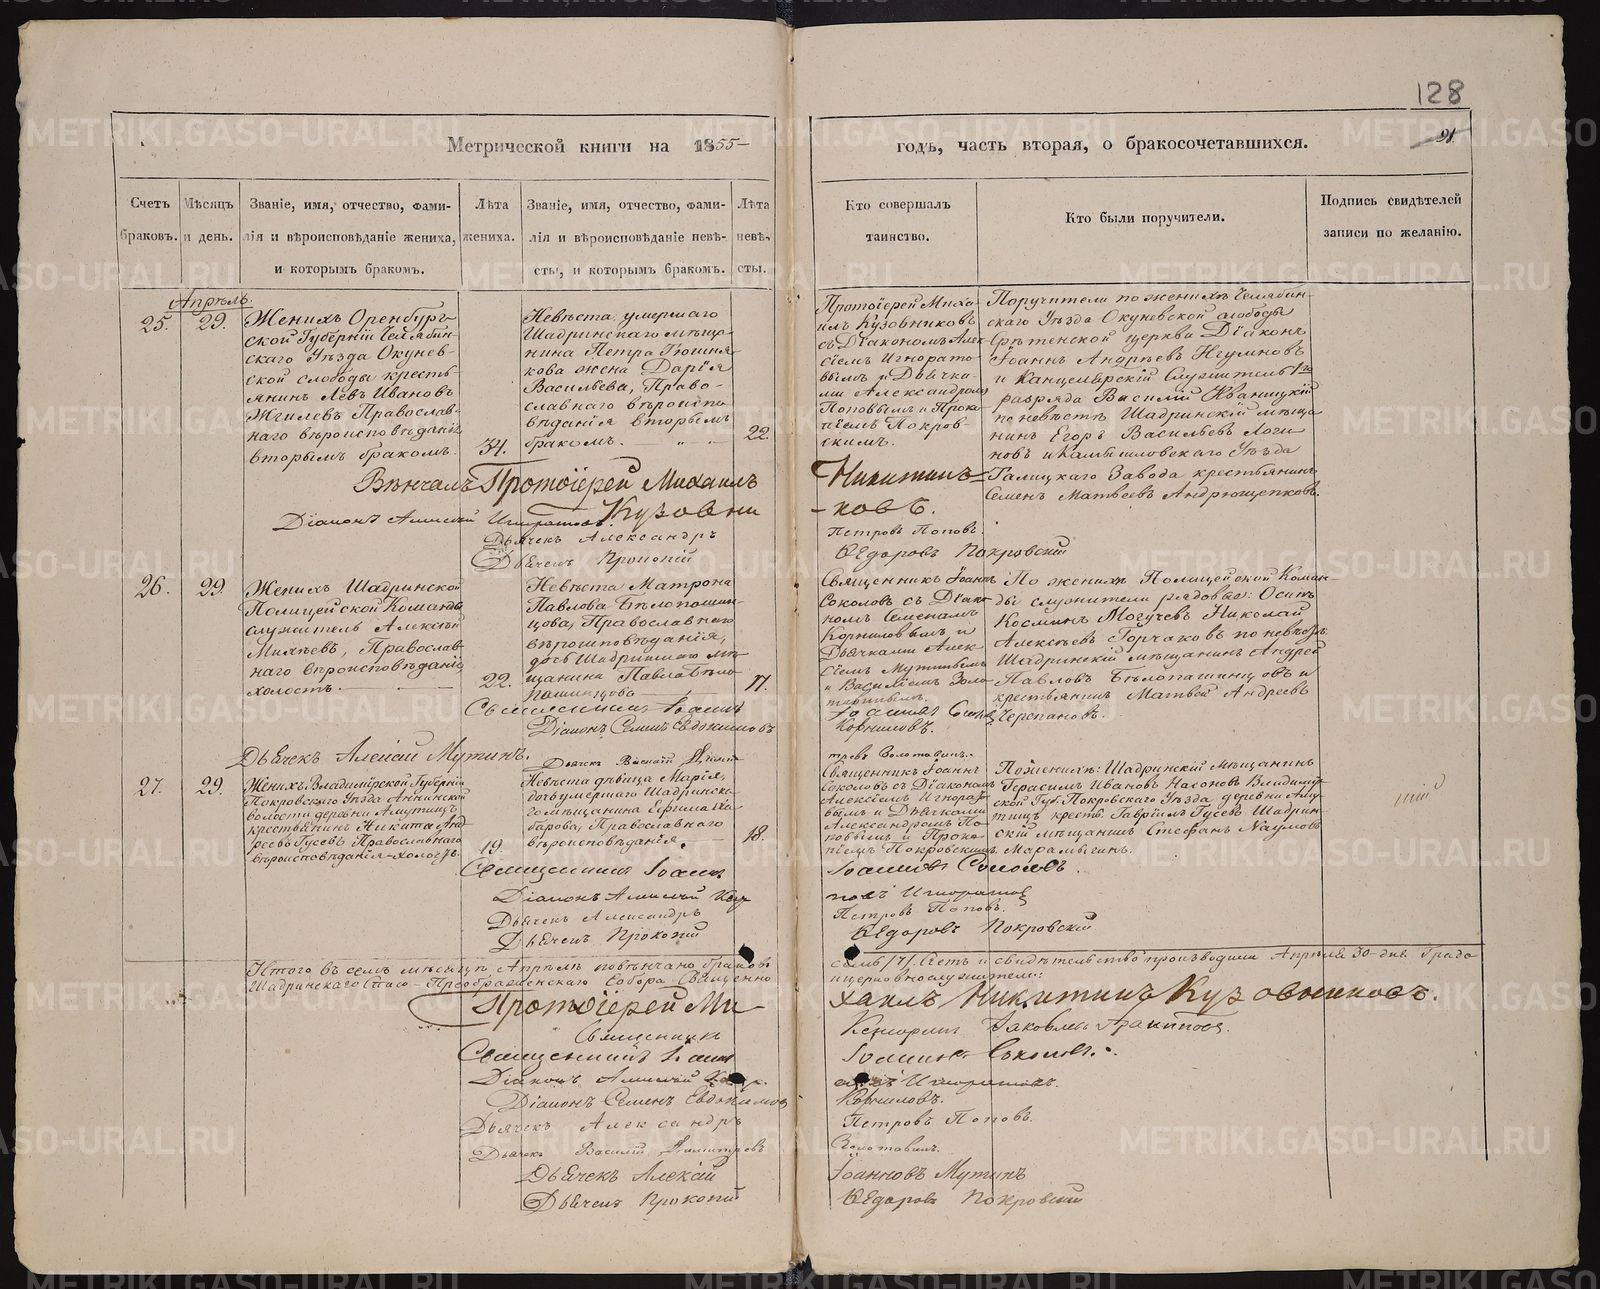 128
91
Метрической книги на 1855
годъ, часть вторая, о бракосочетавшихся.
Счетъ браковъ.
Мѣсяцъ и день.
Званіе, имя, отчество, фами-
лія и вѣроисповѣданіе жениха,
и которымъ бракомъ.
Лѣта
жениха.
Званіе, имя, отчество, фами-
лія и вѣроисповѣданіе невѣ-
сты, и которымъ бракомъ.
Лѣта
невѣ-
сты.
Кто совершалъ
таинство.
Кто были поручители.
Подпись свидѣтелей
записи по желанію.
Апрѣль.
25.
29.
Женихъ Оренбург-
ской Губерніи Челябин-
скаго Уѣзда Окунев-
ской слободы кресть-
янинъ Левъ Ивановъ
Жгилевъ Православ-
наго вѣроисповѣданія
вторымъ бракомъ.
34.
Невѣста умершаго
Шадринскаго мѣща-
нина Петра
кова жена Дарія
Васильева, Право-
славнаго вѣроиспо-
вѣданія вторымъ
бракомъ.
22.
Протоіерей Миха-
илъ Кузовниковъ
съ Діакономъ Алек-
сіемъ Игнорато-
вымъ и Дьячка-
ми Александромъ
Поповымъ и Проко-
піемъ Покров-
скимъ.
Поручители по женихѣ Челябин-
скаго Уѣзда Окуневской слободы
Срѣтенской церкви Діаконъ
Іоаннъ Андреевъ Игумновъ
и Канцелярскій Служитель 1го
разряда Василій Иваницкій
по невѣстѣ Шадринскій мѣща-
нинъ Егоръ Васильевъ Логи-
новъ и Камышловскаго Уѣзда
Талицкаго Завода крестьянинъ
Семенъ Матвеевъ Андрющенковъ.
Вѣнчалъ Протоіерей Михаилъ
Никитинъ
Кузовни
-ковъ.
Діаконъ Алексій Игноратовъ.
Дьячекъ Александръ
Петровъ Поповъ.
Дьячекъ Прокопій
Ѳедоровъ Покровскій
26.
29.
Женихъ Шадринской
Полицейской Команды
служитель Алексѣй
Михѣевъ, Православ-
наго вѣроисповѣданія,
холостъ.
22.
Невѣста Матрона
Павлова Бѣлопашин-
цова, Православнаго
вѣроисповѣданія,
дочь Шадринскаго мѣ-
щанина Павла Бѣло-
пашинцова
17.
Священникъ Іоаннъ
Соколовъ съ Діако-
номъ Семеномъ
Корниловымъ и
Дьячками Алек-
сіемъ Мутинымъ
и Василіемъ Золо-
тавинымъ.
По женихѣ Полицейской Коман-
ды служители рядовые: Осипъ
Косминъ Могучевъ Николай
Алексѣевъ Горчаковъ по невѣстѣ:
Шадринскій мѣщанинъ Андрей
Павловъ Бѣлопашинцовъ и
крестьянинъ Матвей Андреевъ
Черепановъ.
Священникъ Іоаннъ
Іоанновъ
Діаконъ Семенъ Евдокимовъ
Корниловъ.
Дьячекъ Алексій Мутинъ.
Дьячекъ Василій
27.
29.
Женихъ Владимірской Губерніи
Покровскаго Уѣзда Аннинской
волости деревни Амутищъ
крестьянинъ Никита Анд-
реевъ Гусевъ Православнаго
вѣроисповѣданія-холостъ.
19.
Невѣста дѣвица Марія,
дочь умершаго Шадринска-
го мѣщанина Ефима Ха-
барова, Православнаго
вѣроисповѣданія.
18.
Священникъ Іоаннъ
Соколовъ съ Діакономъ
Алексіемъ Игнорато-
вымъ и Дьячками
Александромъ По-
повымъ и Проко-
піемъ Покровскимъ.
По женихѣ: Шадринскій Мѣщанинъ
Герасимъ Ивановъ Насоновъ Владимір-
ской Губ. Покровскаго Уѣзда деревни Аму-
тищъ крест. Гаврилъ Гусевъ Шадрин-
скій мѣщанинъ Стефанъ Наумовъ
Марамыгинъ.
Священникъ Іоаннъ
Іоанновъ Соколовъ.
Діаконъ Алексій
Игноратовъ
Дьячекъ Александръ
Петровъ Поповъ.
Дьячекъ Прокопій
Ѳедоровъ Покровскій
Итого въ семъ мѣсяцѣ Апрѣлѣ повѣнчано браковъ
семь /7/. Счетъ и свидѣтельство производили Апрѣля 30 дня Градо
Шадринскаго Спасо-Преображенскаго Собора Священно
и церковнослужители:
Протоіерей Ми
хаилъ Никитинъ Кузовниковъ.
Священникъ
Яковлевъ
Священникъ Іоаннъ
Іоанновъ Соколовъ.
Діаконъ Алексій
Игноратовъ.
Діаконъ Семенъ Евдокимовъ
Корниловъ.
Дьячекъ Александръ
Петровъ Поповъ.
Дьячекъ Василій Димитріевъ
Золотавинъ.
Дьячекъ Алексій
Іоанновъ Мутинъ
Дьячекъ Прокопій
Ѳедоровъ Покровскій
METRIKI.GASO-URAL.RU